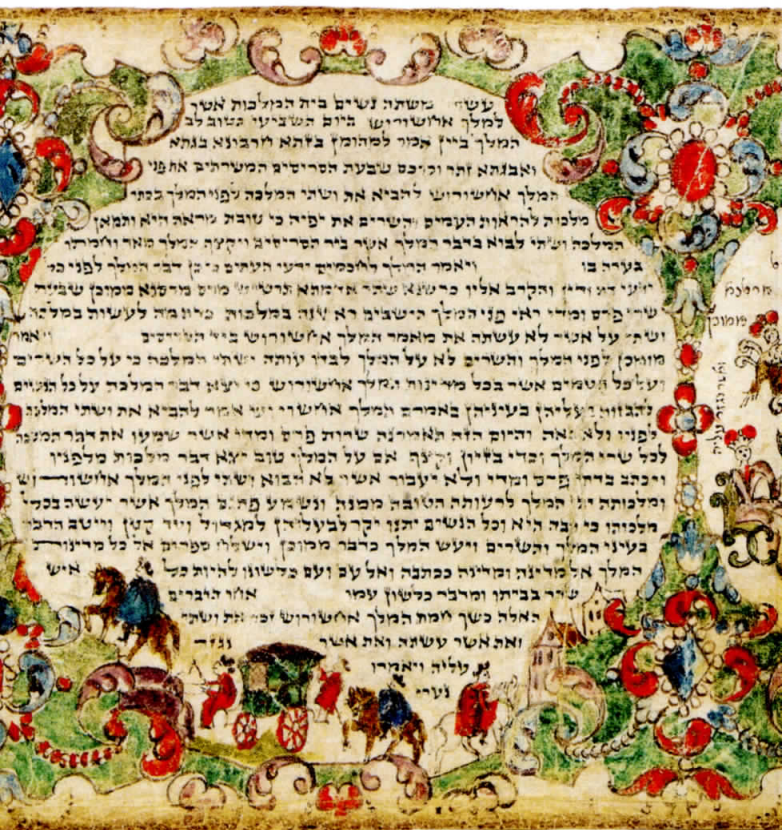 עשתה משתה נשים בית המלכות אשר
למלך אחשורוש ביום השביעי כטוב לב
המלך ביין אמר למהומן בזתא חרבונא בגתא
ואבגתא זתר וכרכס שבעת הסריסים המשרתים את פני
המלך אחשורוש להביא את ושתי המלכה לפני המלך בכתר
מלכות להראות העמים והשרים את יפיה כי טובת מראה היא ותמאן
המלכה ושתי לבוא בדבר המלך אשר ביד הסריסים ויקצף המלך מאד וחמתו
בערה בו ויאמר המלך לחכמים ידעי העתים כי כן דבר המלך לפני כל
ידעי דת ודין והקרב אליו כרשנא שתר אדמתא תרשיש מרס מרסנא ממוכן שבעת
שרי פרס ומדי ראי פני המלך הישבים ראשנה במלכות כדת מה לעשות במלכה
ושתי על אשר לא עשתה את מאמר המלך אחשורוש ביד הסריסים ויאמר
מומכן לפני המלך והשרים לא על המלך לבדו עותה ושתי המלכה כי על כל השרים
ועל כל העמים אשר בכל מדינות המלך אחשורוש כי יצא דבר המלכה על כל הנשים
להבזות בעליהן בעיניהן באמרם המלך אחשורוש אמר להביא את ושתי המלכה
לפניו ולא באה והיום הזה תאמרנה שרות פרס ומדי אשר שמעו את דבר המלכה
לכל שרי המלך וכדי בזיון וקצף אם על המלך טוב יצא דבר מלכות מלפניו
ויכתב בדתי פרס ומדי ולא יעבור אשר לא תבוא ושתי לפני המלך אחשורוש
ומלכותה יתן המלך לרעותה הטובה ממנה ונשמע פתגם המלך אשר יעשה בכל
מלכותו כי רבה היא וכל הנשים יתנו יקר לבעליהן למגדול ועד קטן וייטב הדבר
בעיני המלך והשרים ויעש המלך כדבר ממוכן וישלח ספרים אל כל מדינות
המלך אל מדינה ומדינה ככתבה ואל עם ועם כלשונו להיות כל איש
שרר בביתו ומדבר כלשון עמו אחר הדברים
האלה כשך חמת המלך אחשורוש זכר את ושתי
ואת אשר עשתה ואת אשר נגזר
עליה ויאמרו
נערי
ממוכן